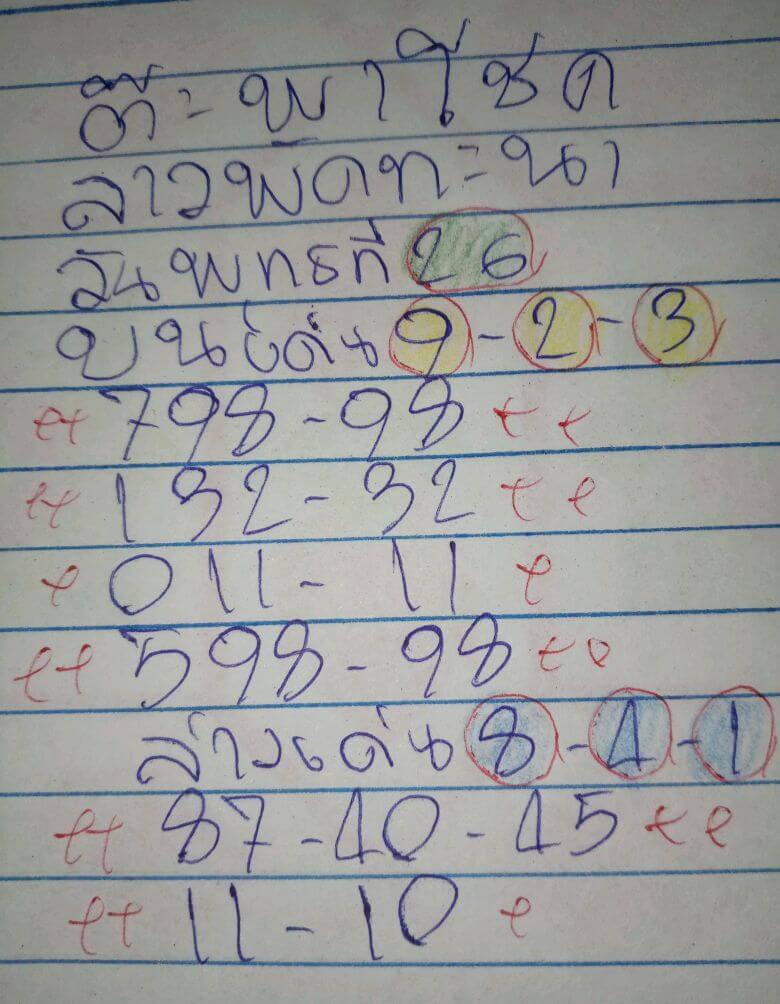 ต๊ะพาโชค
ลาวพัดทะนา
วันพุทธที่ 26
บนเด่น 9-2-3
798-98
132-32
011-11
598-98
ล่างเด่น 8-4-1
87-40-45
11-10